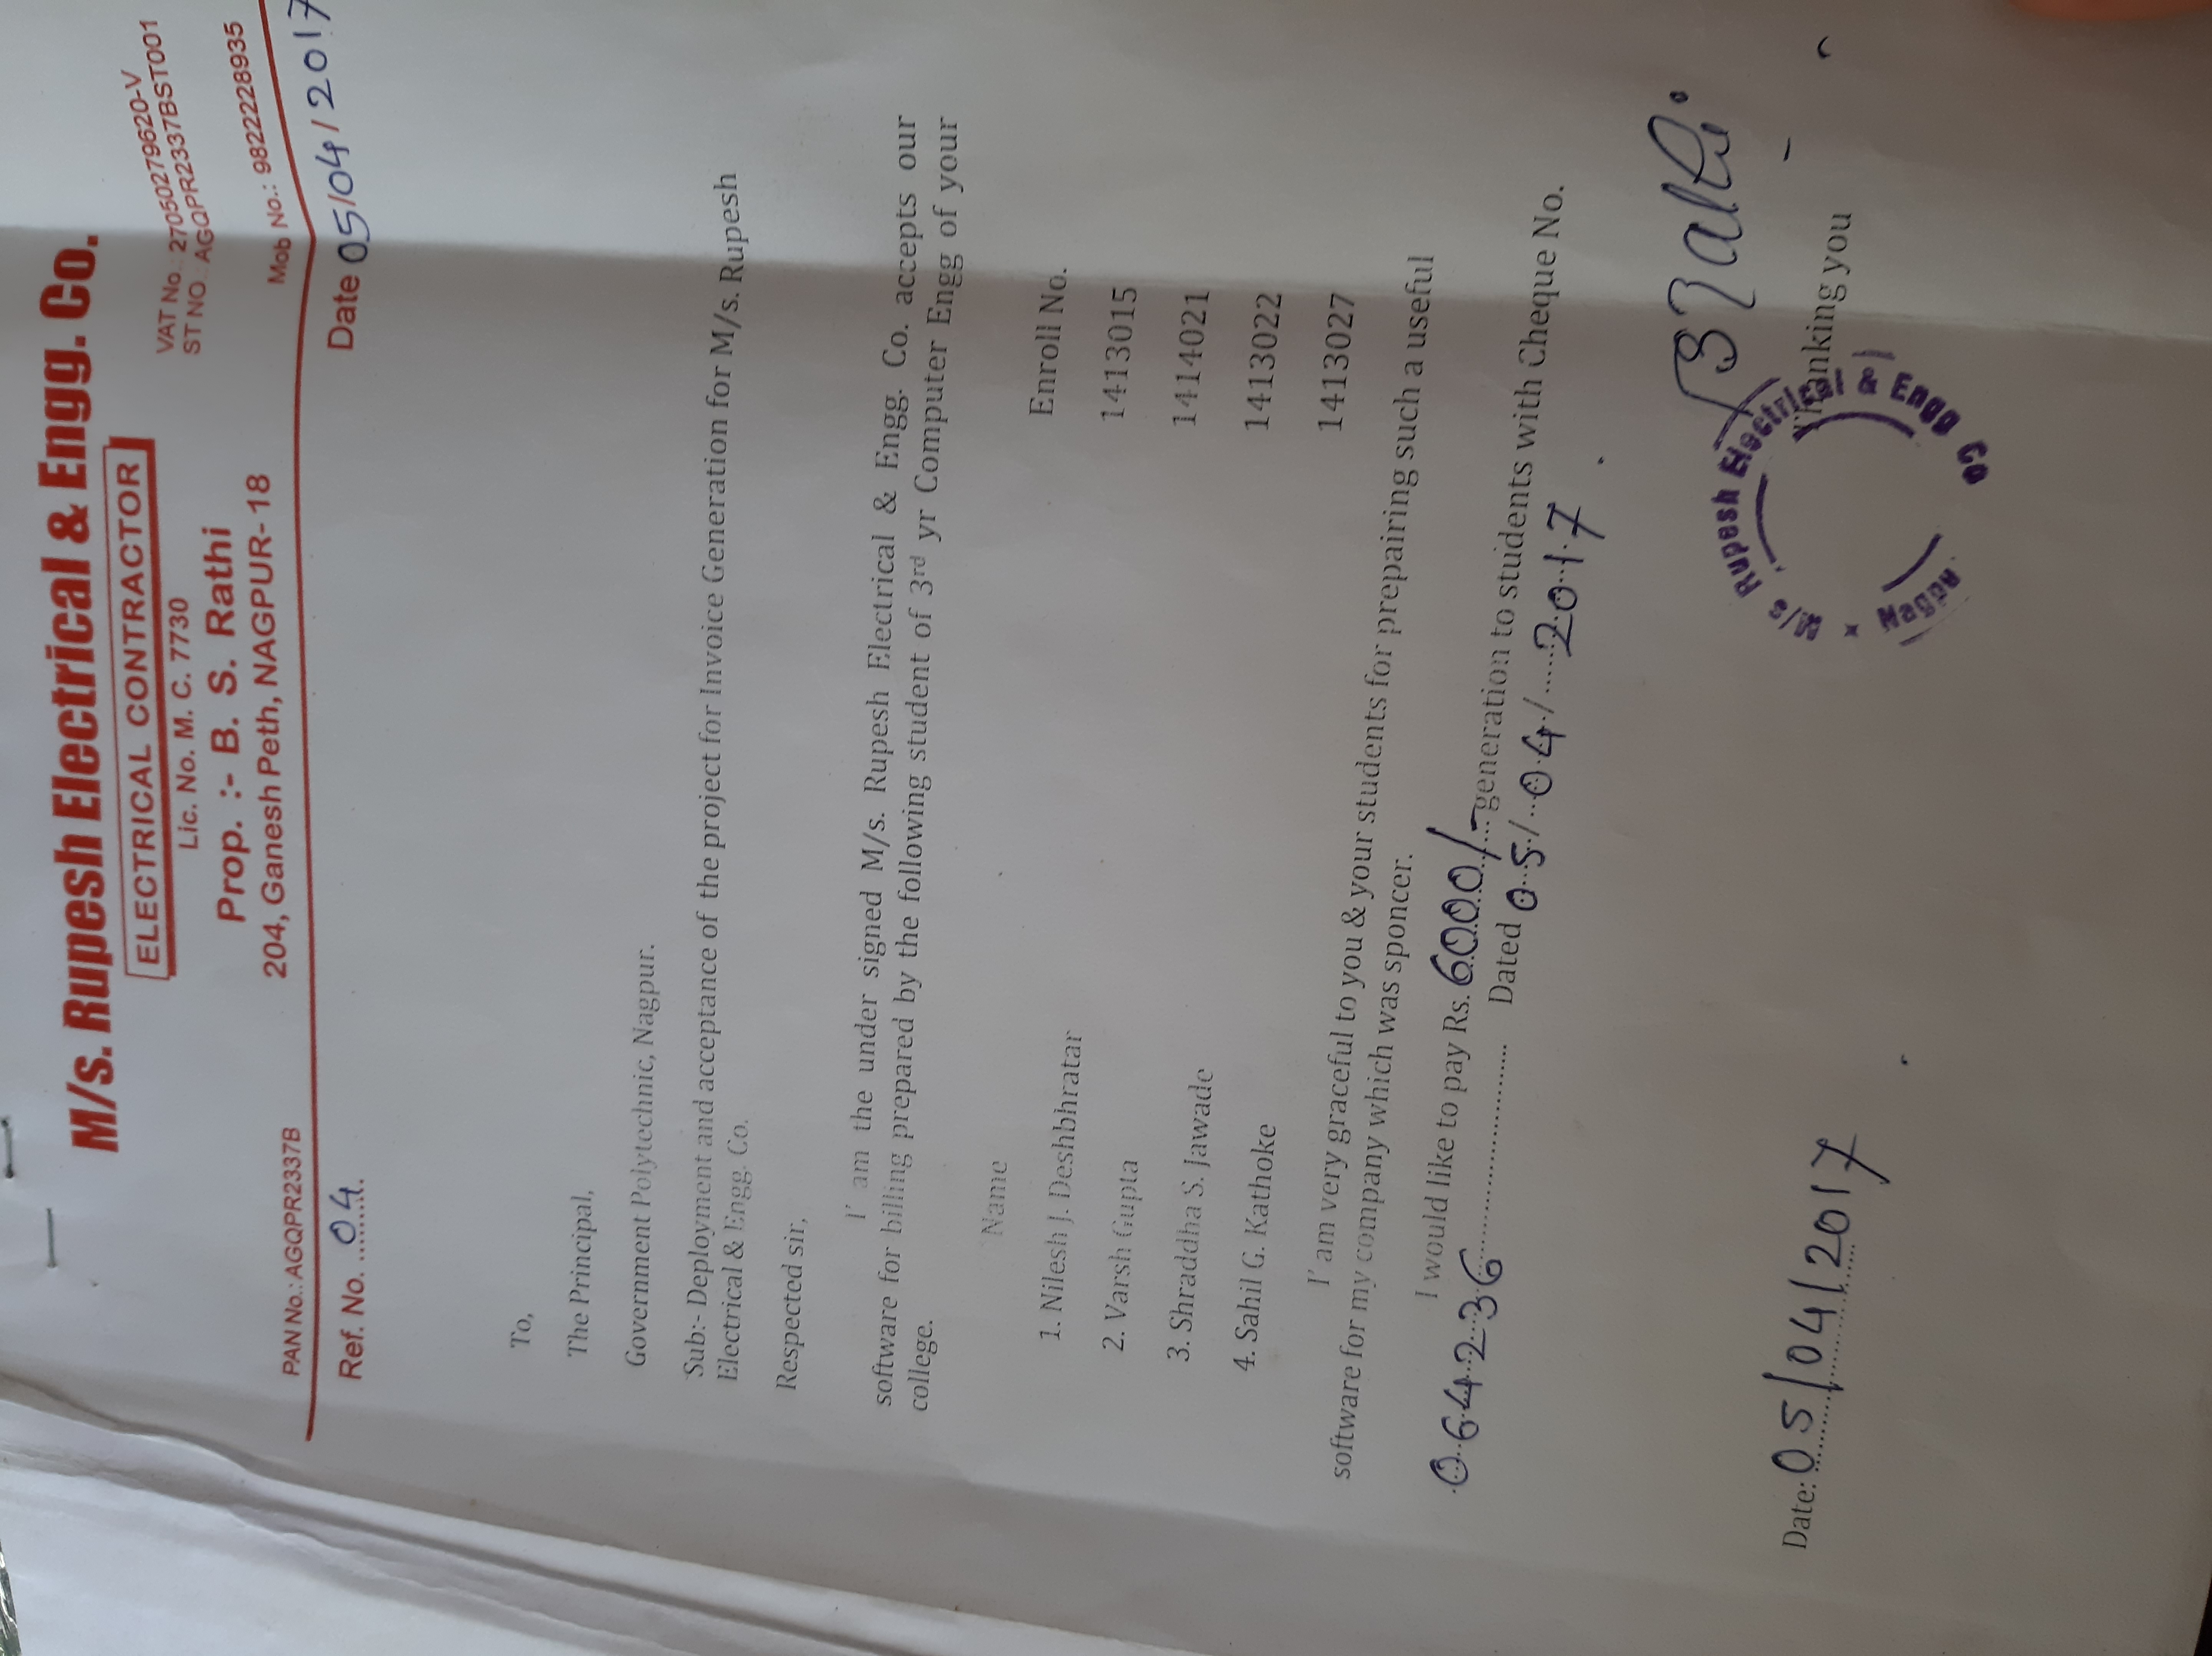 M/s. Rupesh Electrical & Engg. Co.
ELECTRICAL CONTRACTOR
Lic. No. M. C. 7730
Prop. :- B. S. Rathi
204, Ganesh Peth, NAGPUR- 18
VAT No. 27050279620-V
ST NO. AGQPR2337BST001
Mob No.: 9822228935
PAN No.: AGQPR2337B
Ref. No. 04
Date 05/04/2017
To,
The Principal,
Government Polytechnic, Nagpur.
Sub:- Deployment and acceptance of the project for Invoice Generation for M/s. Rupesh
Electrical & Engg. Co.
Respected sir,
I' am the under signed M/s. Rupesh Electrical & Engg. Co. accepts our
software for billing prepared by the following student of 3rd yr Computer Engg of your
college.
Name Enroll No.
1. Nilesh J. Deshbhratar 1413015
2. Varsh Gupta 1414021
3. Shraddha S. Jawade 1413022
4. Sahil G. Kathoke 1413027
I' am very graceful to you & your students for prepairing such a useful
software for my company which was sponcer.
I would like to pay Rs. 6000/- generation to students with Cheque No.
064236 Dated 05/04/2017.
BRathi
Thanking you
Date: 05/04/2017
M/s Rupesh Electrical & Engg Co